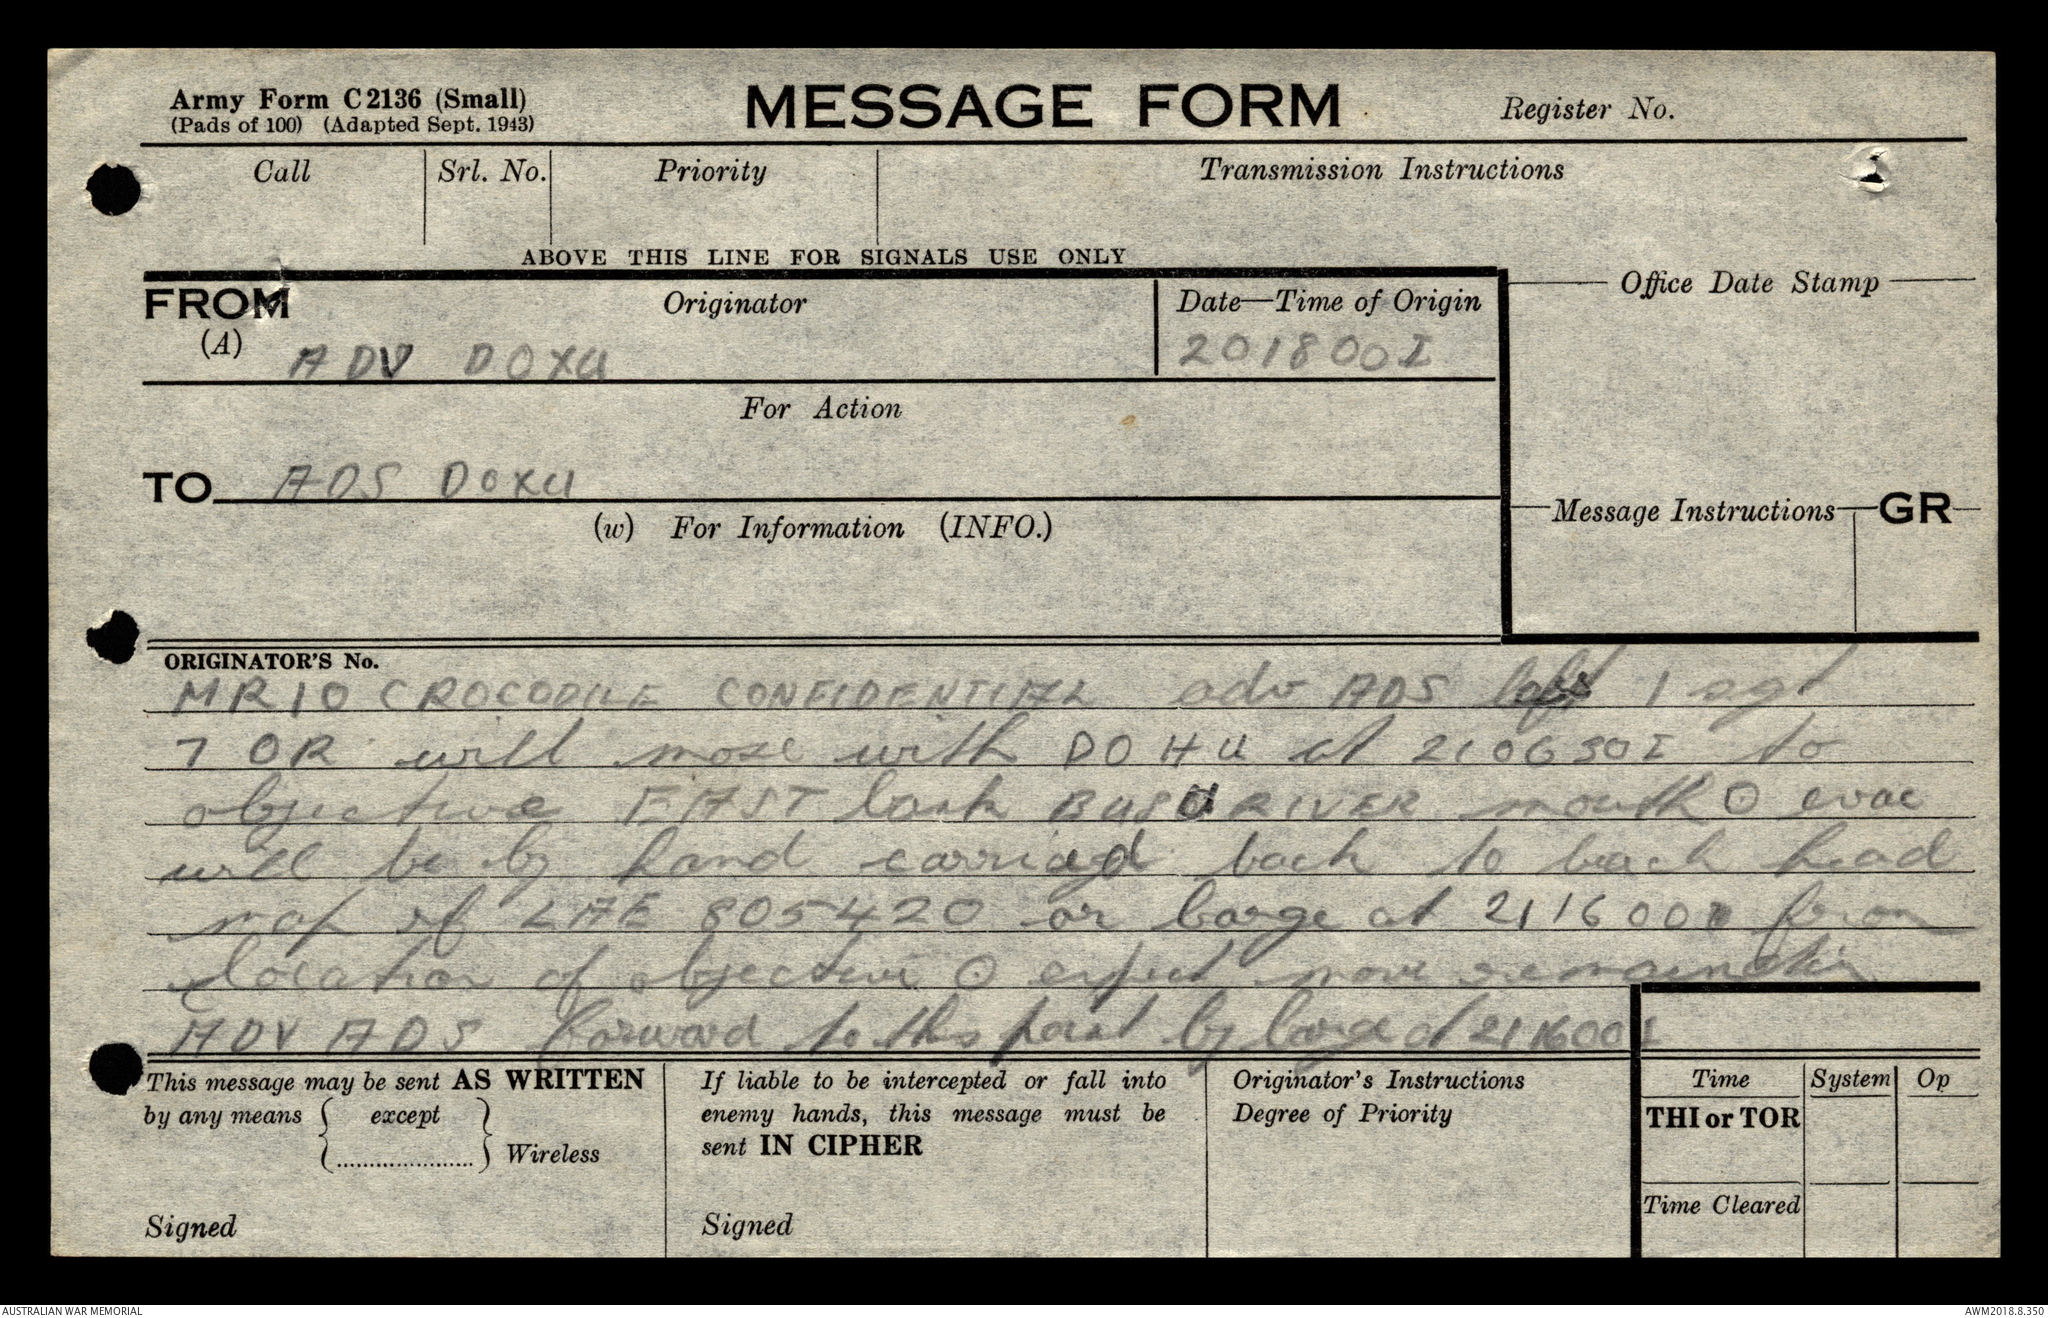 Army Form C2136 (Small)
(Pads of 100) (Adapted Sept. 1943)
MESSAGE FORM
Register No.
Call
Srl. No.
Priority
Transmission Instructions
ABOVE THIS LINE FOR SIGNALS USE ONLY
FROM
(A)
Originator
ADV DOXU
Date—Time of Origin
201800I
Office Date Stamp
For Action
TO ADS DOXU
(w) For Information (INFO.)
Message Instructions
GR
ORIGINATOR'S No.
MR10 CROCODILE CONFIDENTIAL adv ADS 1 sgt
7 OR will move with DOHU at 210630I to
objective EAST bank BUSU RIVER mouth ⊙ evac
will be by hand back to beach head
map ref LAE 805420 or barge at 211600I from
location of objective ⊙ expect move
ADV ADS forward to this point by barge at 211600I
This message may be sent AS WRITTEN
by any means { except } Wireless
{.....................}
Signed
If liable to be intercepted or fall into
enemy hands, this message must be
sent IN CIPHER
Signed
Originator's Instructions
Degree of Priority
Time
System
Op
THI or TOR
Time Cleared
AUSTRALIAN WAR MEMORIAL
AWM2018.8.350